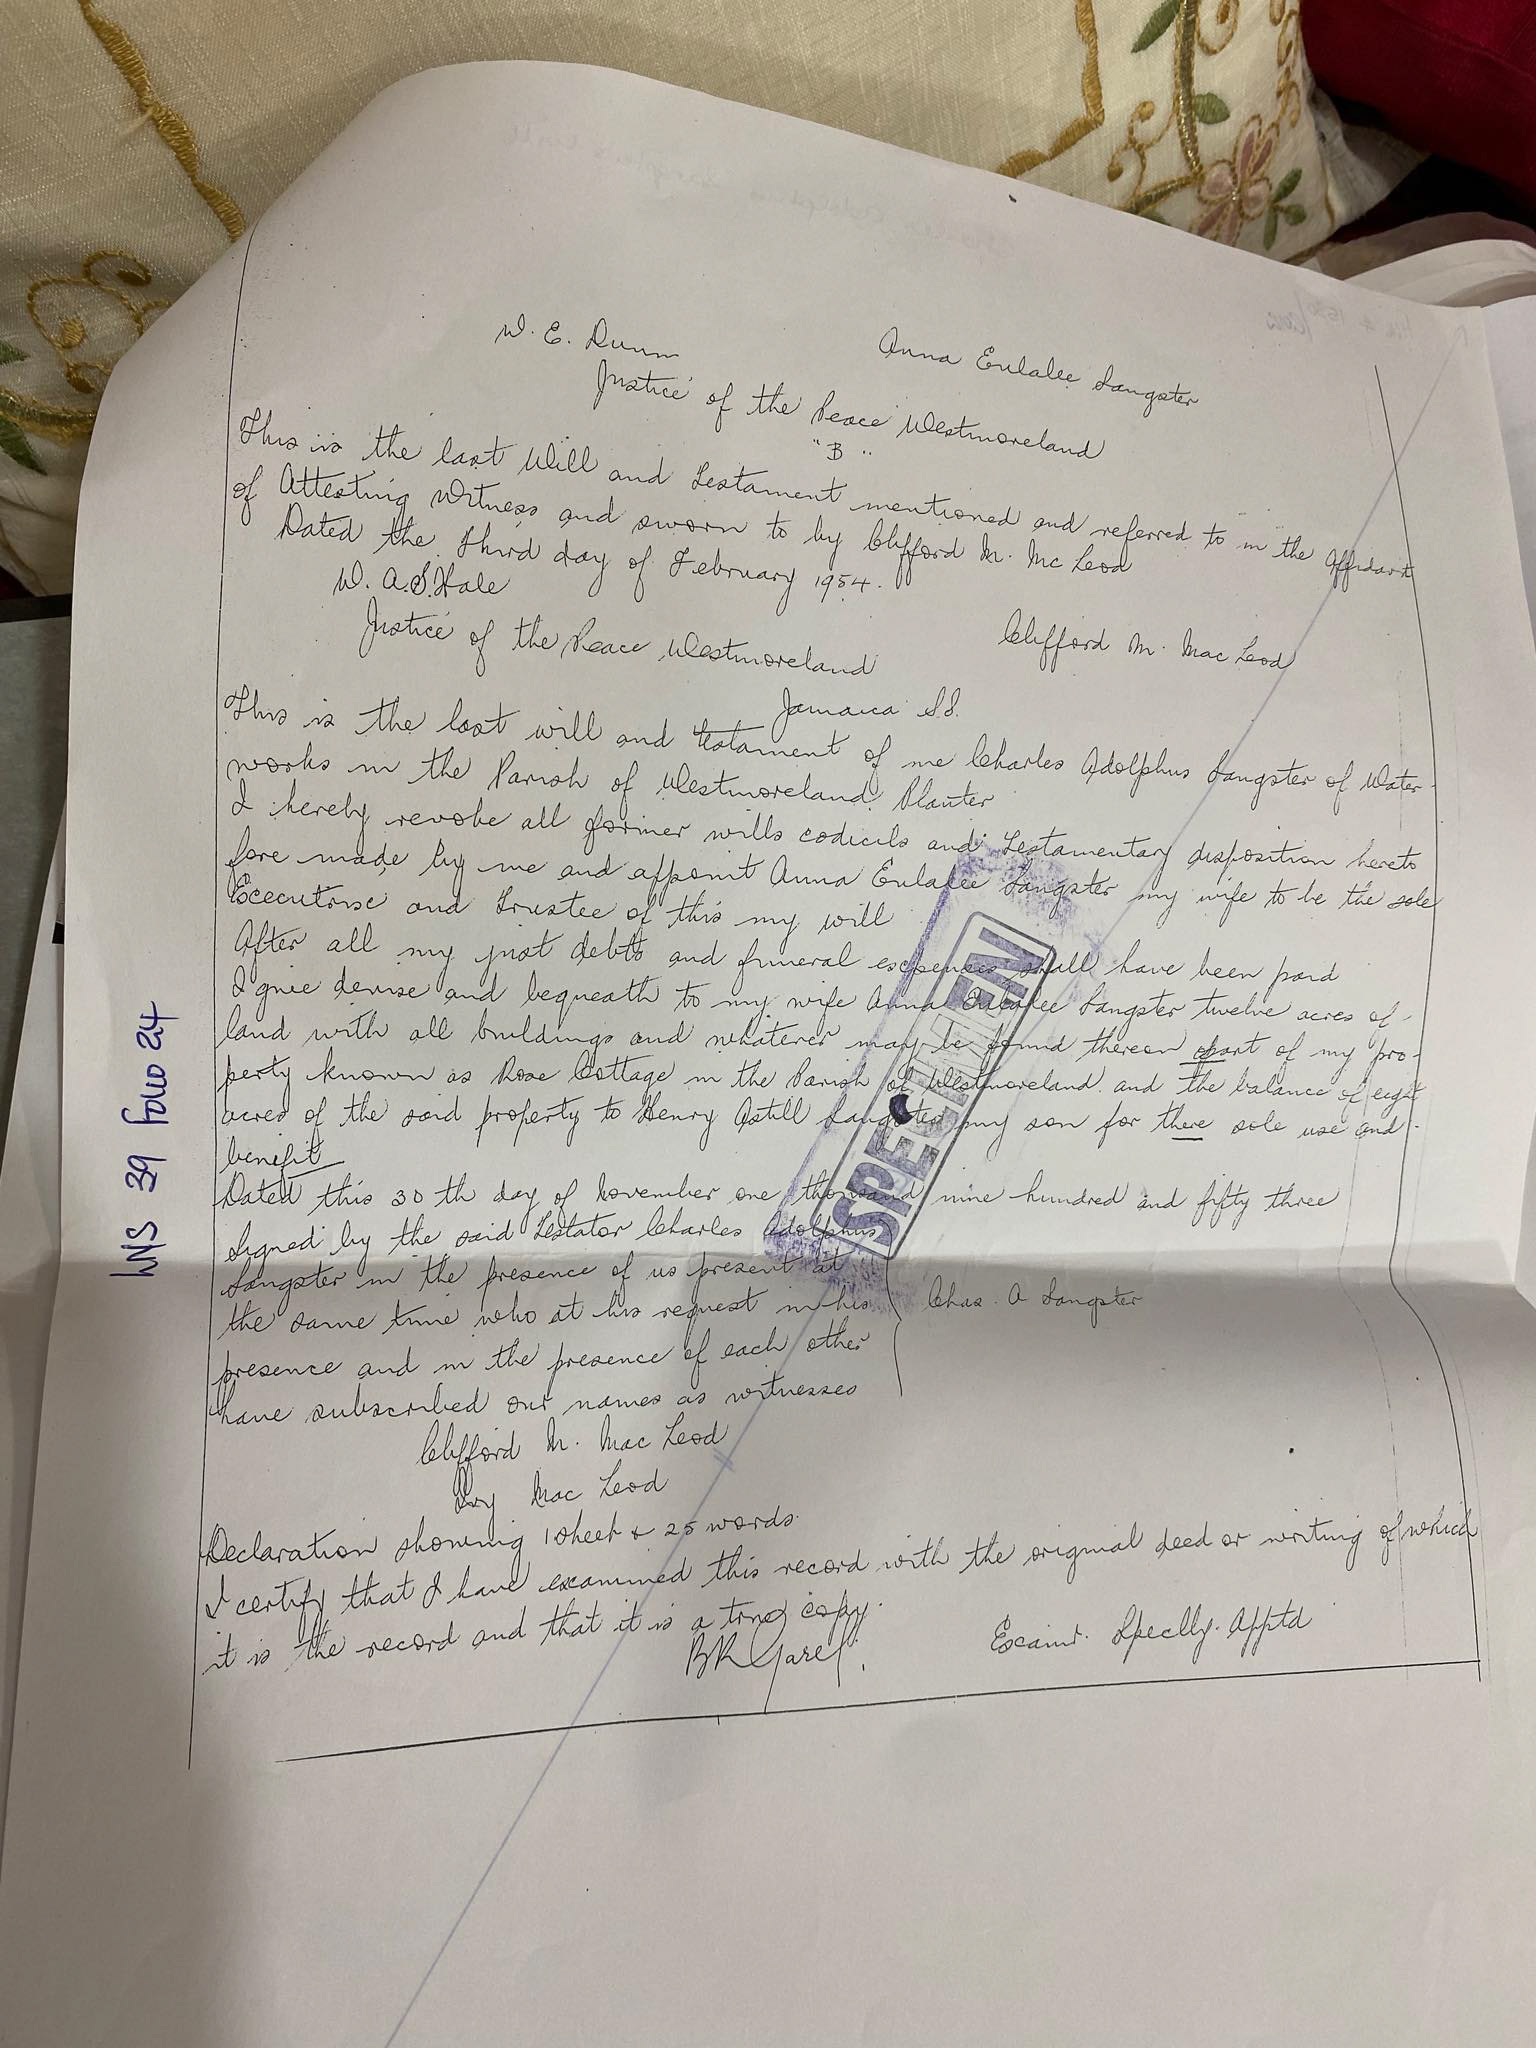 W. E. Dunn
Anna Eulalee Sangster
Justice of the Peace Westmoreland
"B"
This is the last Will and Testament mentioned and referred to in the Affidavit
of Attesting Witness and sworn to by Clifford M. Mc Leod
Dated the Third day of February 1954.
W. A. S. Hale
Clifford M. Mac Leod
Justice of the Peace Westmoreland
Jamaica S.S.
This is the last will and testament of me Charles Adolphus Sangster of Water-
works in the Parish of Westmoreland Planter
I hereby revoke all former wills codicils and Testamentary disposition hereto
fore made by me and appoint Anna Eulalee Sangster my wife to be the sole
Executrix and Trustee of this my will
After all my just debts and funeral expences shall have been paid
I give devise and bequeath to my wife Anna Eulalee Sangster twelve acres of
land with all buildings and whatever may be found thereon part of my pro-
perty known as Rose Cottage in the Parish of Westmoreland and the balance of eight
acres of the said property to Henry Astill Sangster my son for there sole use and
benefit
Dated this 30th day of November one thousand nine hundred and fifty three
Signed by the said Testator Charles Adolphus
Sangster in the presence of us present at
the same time who at his request in his
presence and in the presence of each other
have subscribed our names as witnesses
Chas. A Sangster
Clifford M. Mac Leod
Ivy Mac Leod
Declaration showing 1 sheet & 25 words.
I certify that I have examined this record with the original deed or writing of which
it is the record and that it is a true copy.
Examr. Speclly. Apptd
SPECIMEN
LNS 39 Folio 24